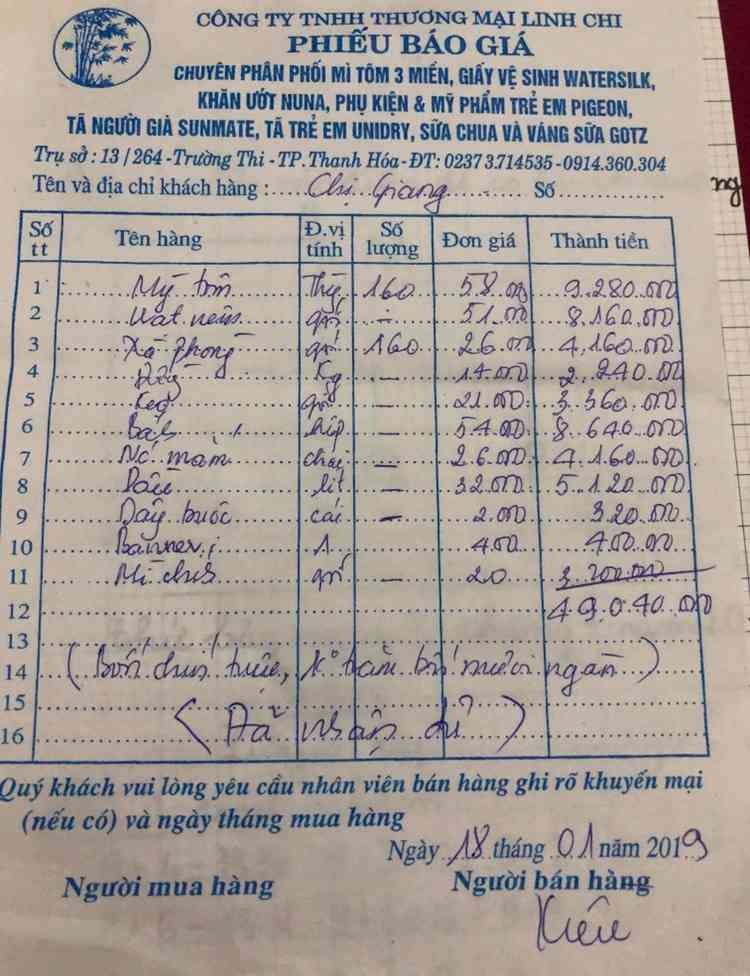 CÔNG TY TNHH THƯƠNG MẠI LINH CHI
PHIẾU BÁO GIÁ
CHUYÊN PHÂN PHỐI MÌ TÔM 3 MIỀN, GIẤY VỆ SINH WATERSILK,
KHĂN ƯỚT NUNA, PHỤ KIỆN & MỸ PHẨM TRẺ EM PIGEON,
TÃ NGƯỜI GIÀ SUNMATE, TÃ TRẺ EM UNIDRY, SỮA CHUA VÀ VÁNG SỮA GOTZ
Trụ sở : 13 / 264 - Trường Thi - TP. Thanh Hóa - ĐT: 02373.714535 - 0914.360.304
Tên và địa chỉ khách hàng : Chị Giang Số
Số tt Tên hàng Đ.vị tính Số lượng Đơn giá Thành tiền
1 Mỳ tôm 160 58.000 9.280.000
2 gói - 51.000 8.160.000
3 Xà phòng gói 160 26.000 4.160.000
4 Kg - 14.000 2.240.000
5 Kẹo gói - 21.000 3.360.000
6 Bánh hộp - 54.000 8.640.000
7 Nc mắm chai - 26.000 4.160.000
8 Dầu lít - 32.000 5.120.000
9 Dây buộc cái - 2.000 320.000
10 Banner 1 400 400.000
11 Mì chính gói - 20 3.200.000
12 49.040.000
13
14 (Bốn chín triệu, k trăm bốn mươi ngàn)
15
16 (Đã nhận đủ)
Quý khách vui lòng yêu cầu nhân viên bán hàng ghi rõ khuyến mại
(nếu có) và ngày tháng mua hàng
Ngày 18 tháng 01 năm 2019
Người mua hàng Người bán hàng